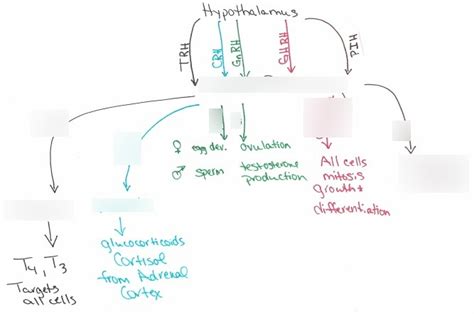 Hypothalamus
TRH
CRH
GnRH
GHRH
PIH
♀ egg dev. ovulation
♂ sperm testosterone production
All cells
mitosis
growth +
differentiation
T4, T3
Targets
all cells
glucocorticoids
Cortisol
from Adrenal
Cortex